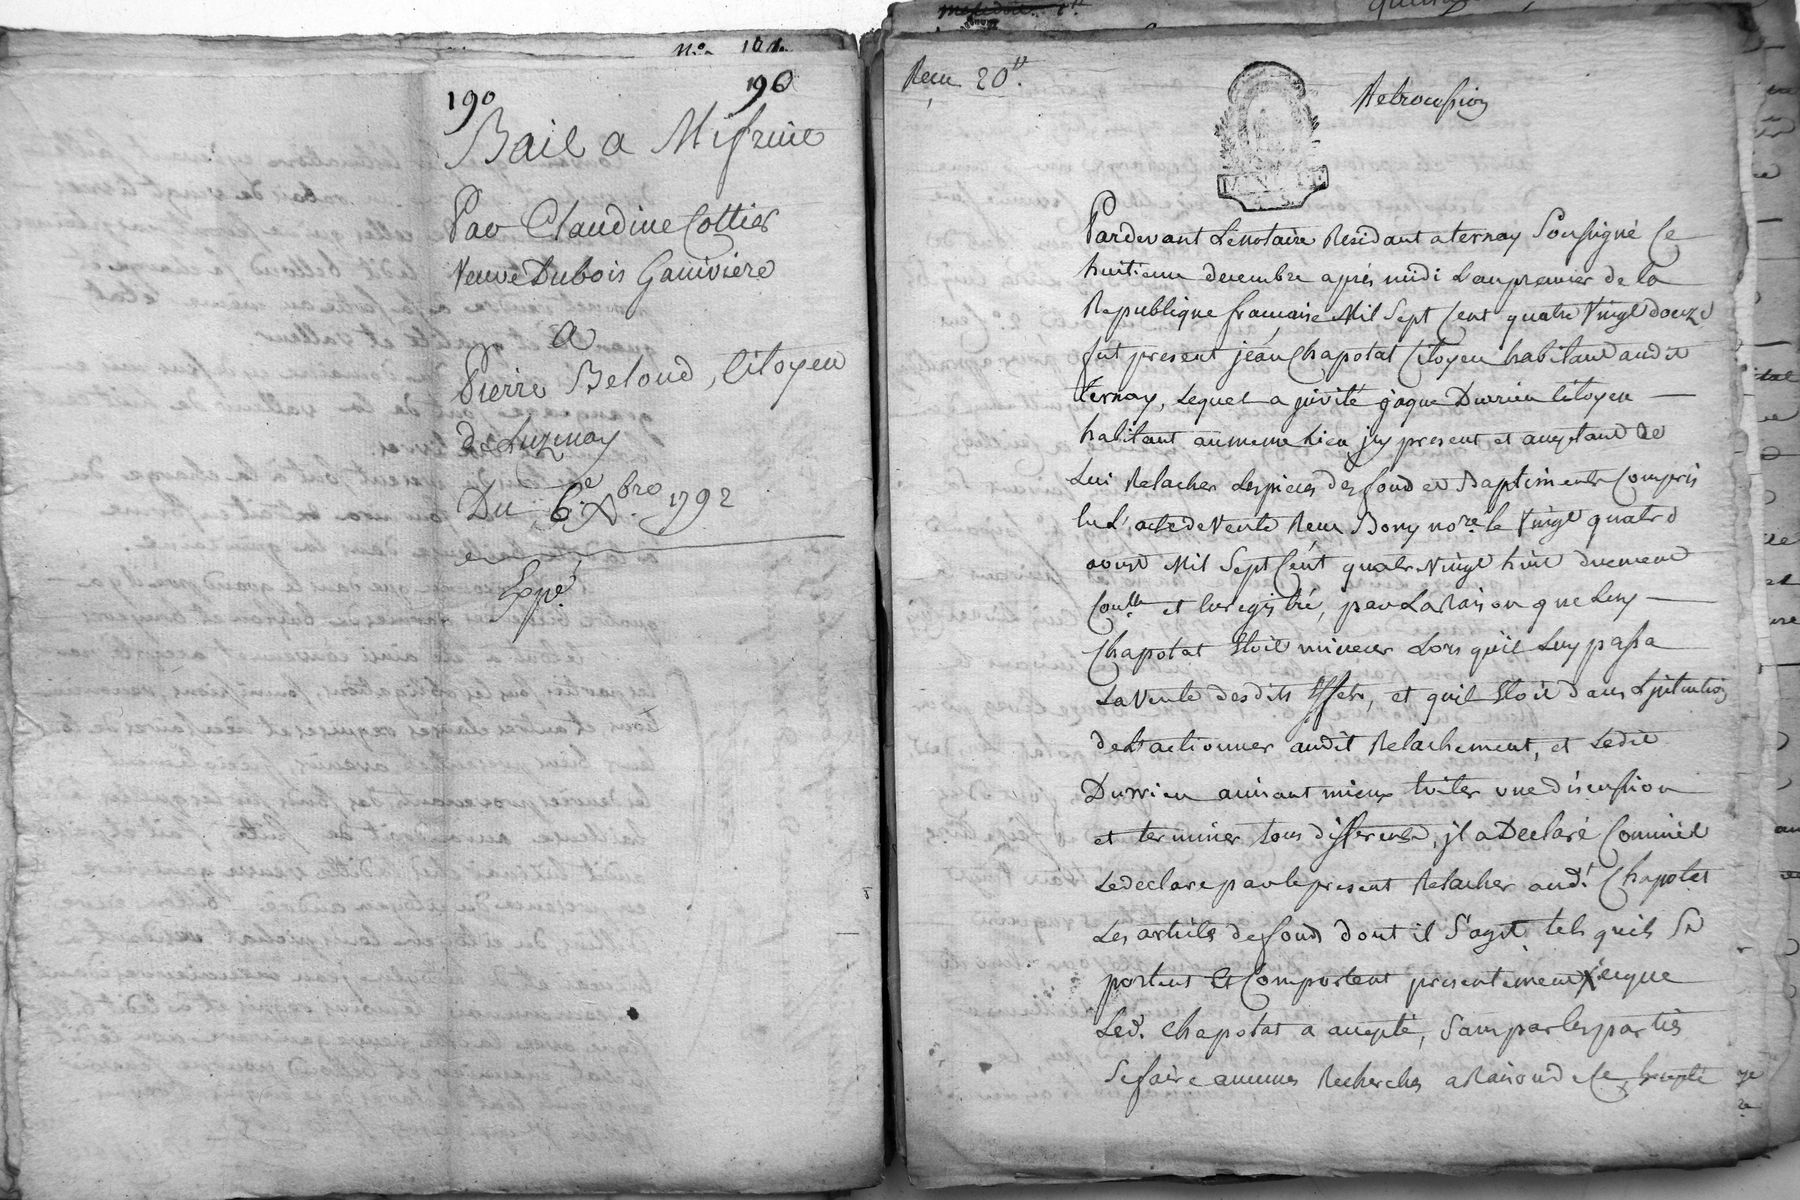 N.o 191.
190
196
Bail a Mifruit
Par Claudine Cottier
veuve Dubois Ganiviere
a
Pierre Beloud, Citoyen
de Luzinay
Du 6.e Xbre 1792
Expé.
Reçu 20.s
Retrocession
Pardevant Le notaire Residant a ternay Soussigné Ce
huitieme decembre aprés midi L'an premier de la
Republique françaire Mil Sept Cent quatre Vingt douze
fut present jean Chapotat Citoyen habitant audit
ternay, Lequel a jnvité jaque Durrieu Citoyen
habitant au meme Lieu jcy present et aceptant de
Lui Relacher Les pieces des fond et Baptiments Compris
en L'acte de Vente Reçu Bony no.re le Vingt quatre
aoust Mil Sept Cent quatre Vingt huit duement
Con.llé et Enregistré, par La Raison que Luy
Chapotat Etoit mineur Lors qu'il Luy passa
La Vente desdits Effets, et quil Etoit dans L'jntention
de L'actionner audit Relachement, et Ledit
Durrieu aimant mieux Eviter une discussion
et terminer tous differents, jl a Declaré Comme il
Le declare par le present Relacher aud.t Chapotat
Les articles de fond dont il S'agit tels quils Se
portent Et Comportent presentement X ceque
Led. Chapotat a accepté, Sans par Les parties
Se faire aucunes Recherches a Raison de Ce, compté